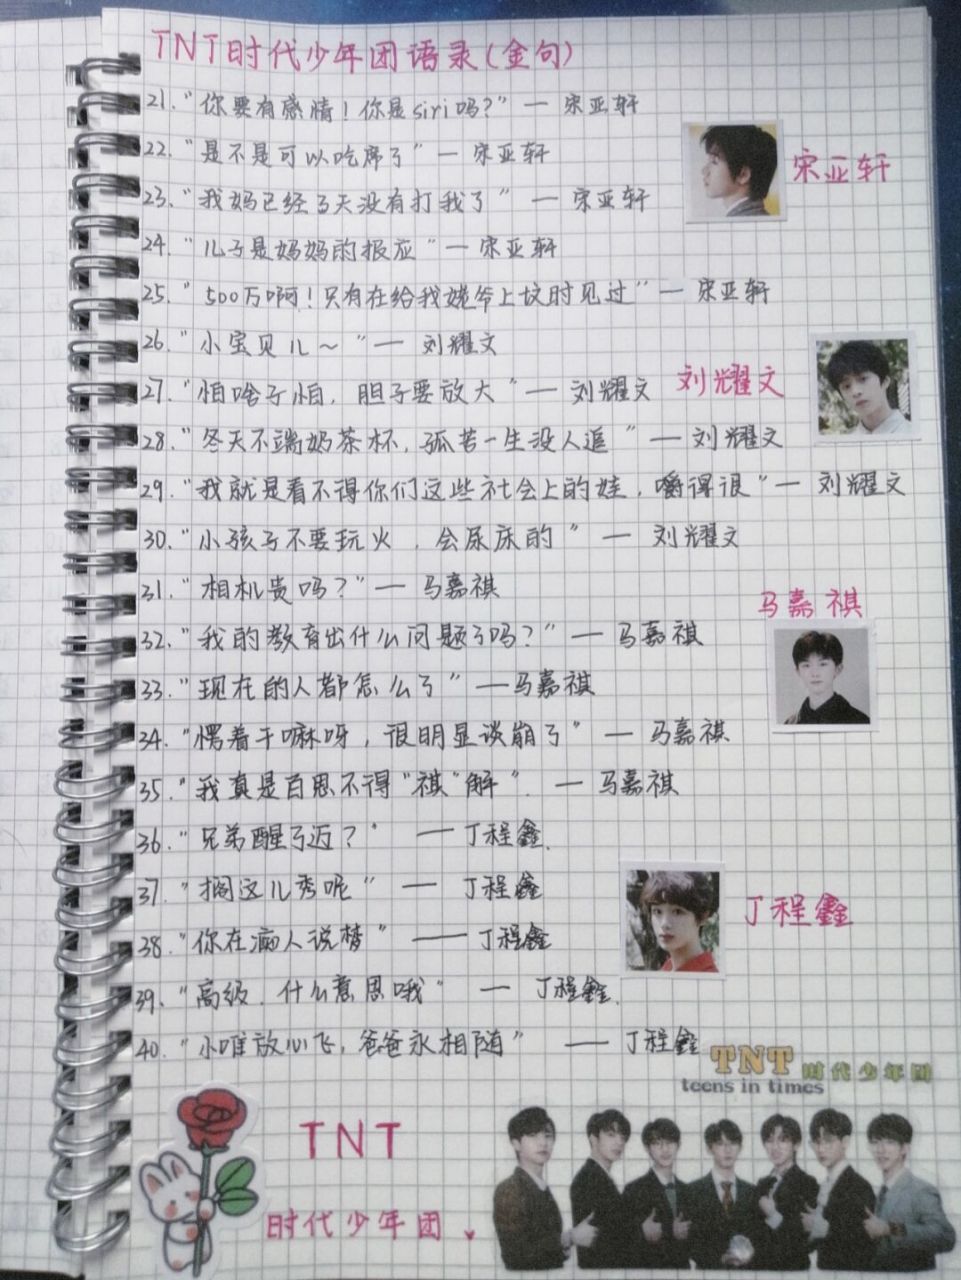 TNT时代少年团语录(金句)
21.“你要有感情！你是siri吗？”— 宋亚轩
22.“是不是可以吃席了”— 宋亚轩
宋亚轩
23.“我妈已经3天没有打我了” — 宋亚轩
24.“儿子是妈妈的报应”— 宋亚轩
25.“500万啊！只有在给我姥爷上坟时见过”— 宋亚轩
26.“小宝贝儿～”— 刘耀文
27.“怕啥子怕，胆子要放大”— 刘耀文
刘耀文
28.“冬天不端奶茶杯，孤苦一生没人追”— 刘耀文
29.“我就是看不得你们这些社会上的娃，嚼得很”— 刘耀文
30.“小孩子不要玩火，会尿床的”— 刘耀文
31.“相机贵吗？”— 马嘉祺
马嘉祺
32.“我的教育出什么问题了吗？”— 马嘉祺
33.“现在的人都怎么了”—马嘉祺
34.“愣着干嘛呀，很明显谈崩了”— 马嘉祺
35.“我真是百思不得“祺”解”. — 马嘉祺
36.“兄弟醒了迈？” — 丁程鑫.
37.“搁这儿秀呢” — 丁程鑫
丁程鑫
38.“你在痴人说梦” — 丁程鑫
39.“高级.什么意思哦” — 丁程鑫.
40.“小唯放心飞，爸爸永相随” — 丁程鑫
TNT 时代少年团
teens in times
TNT
时代少年团